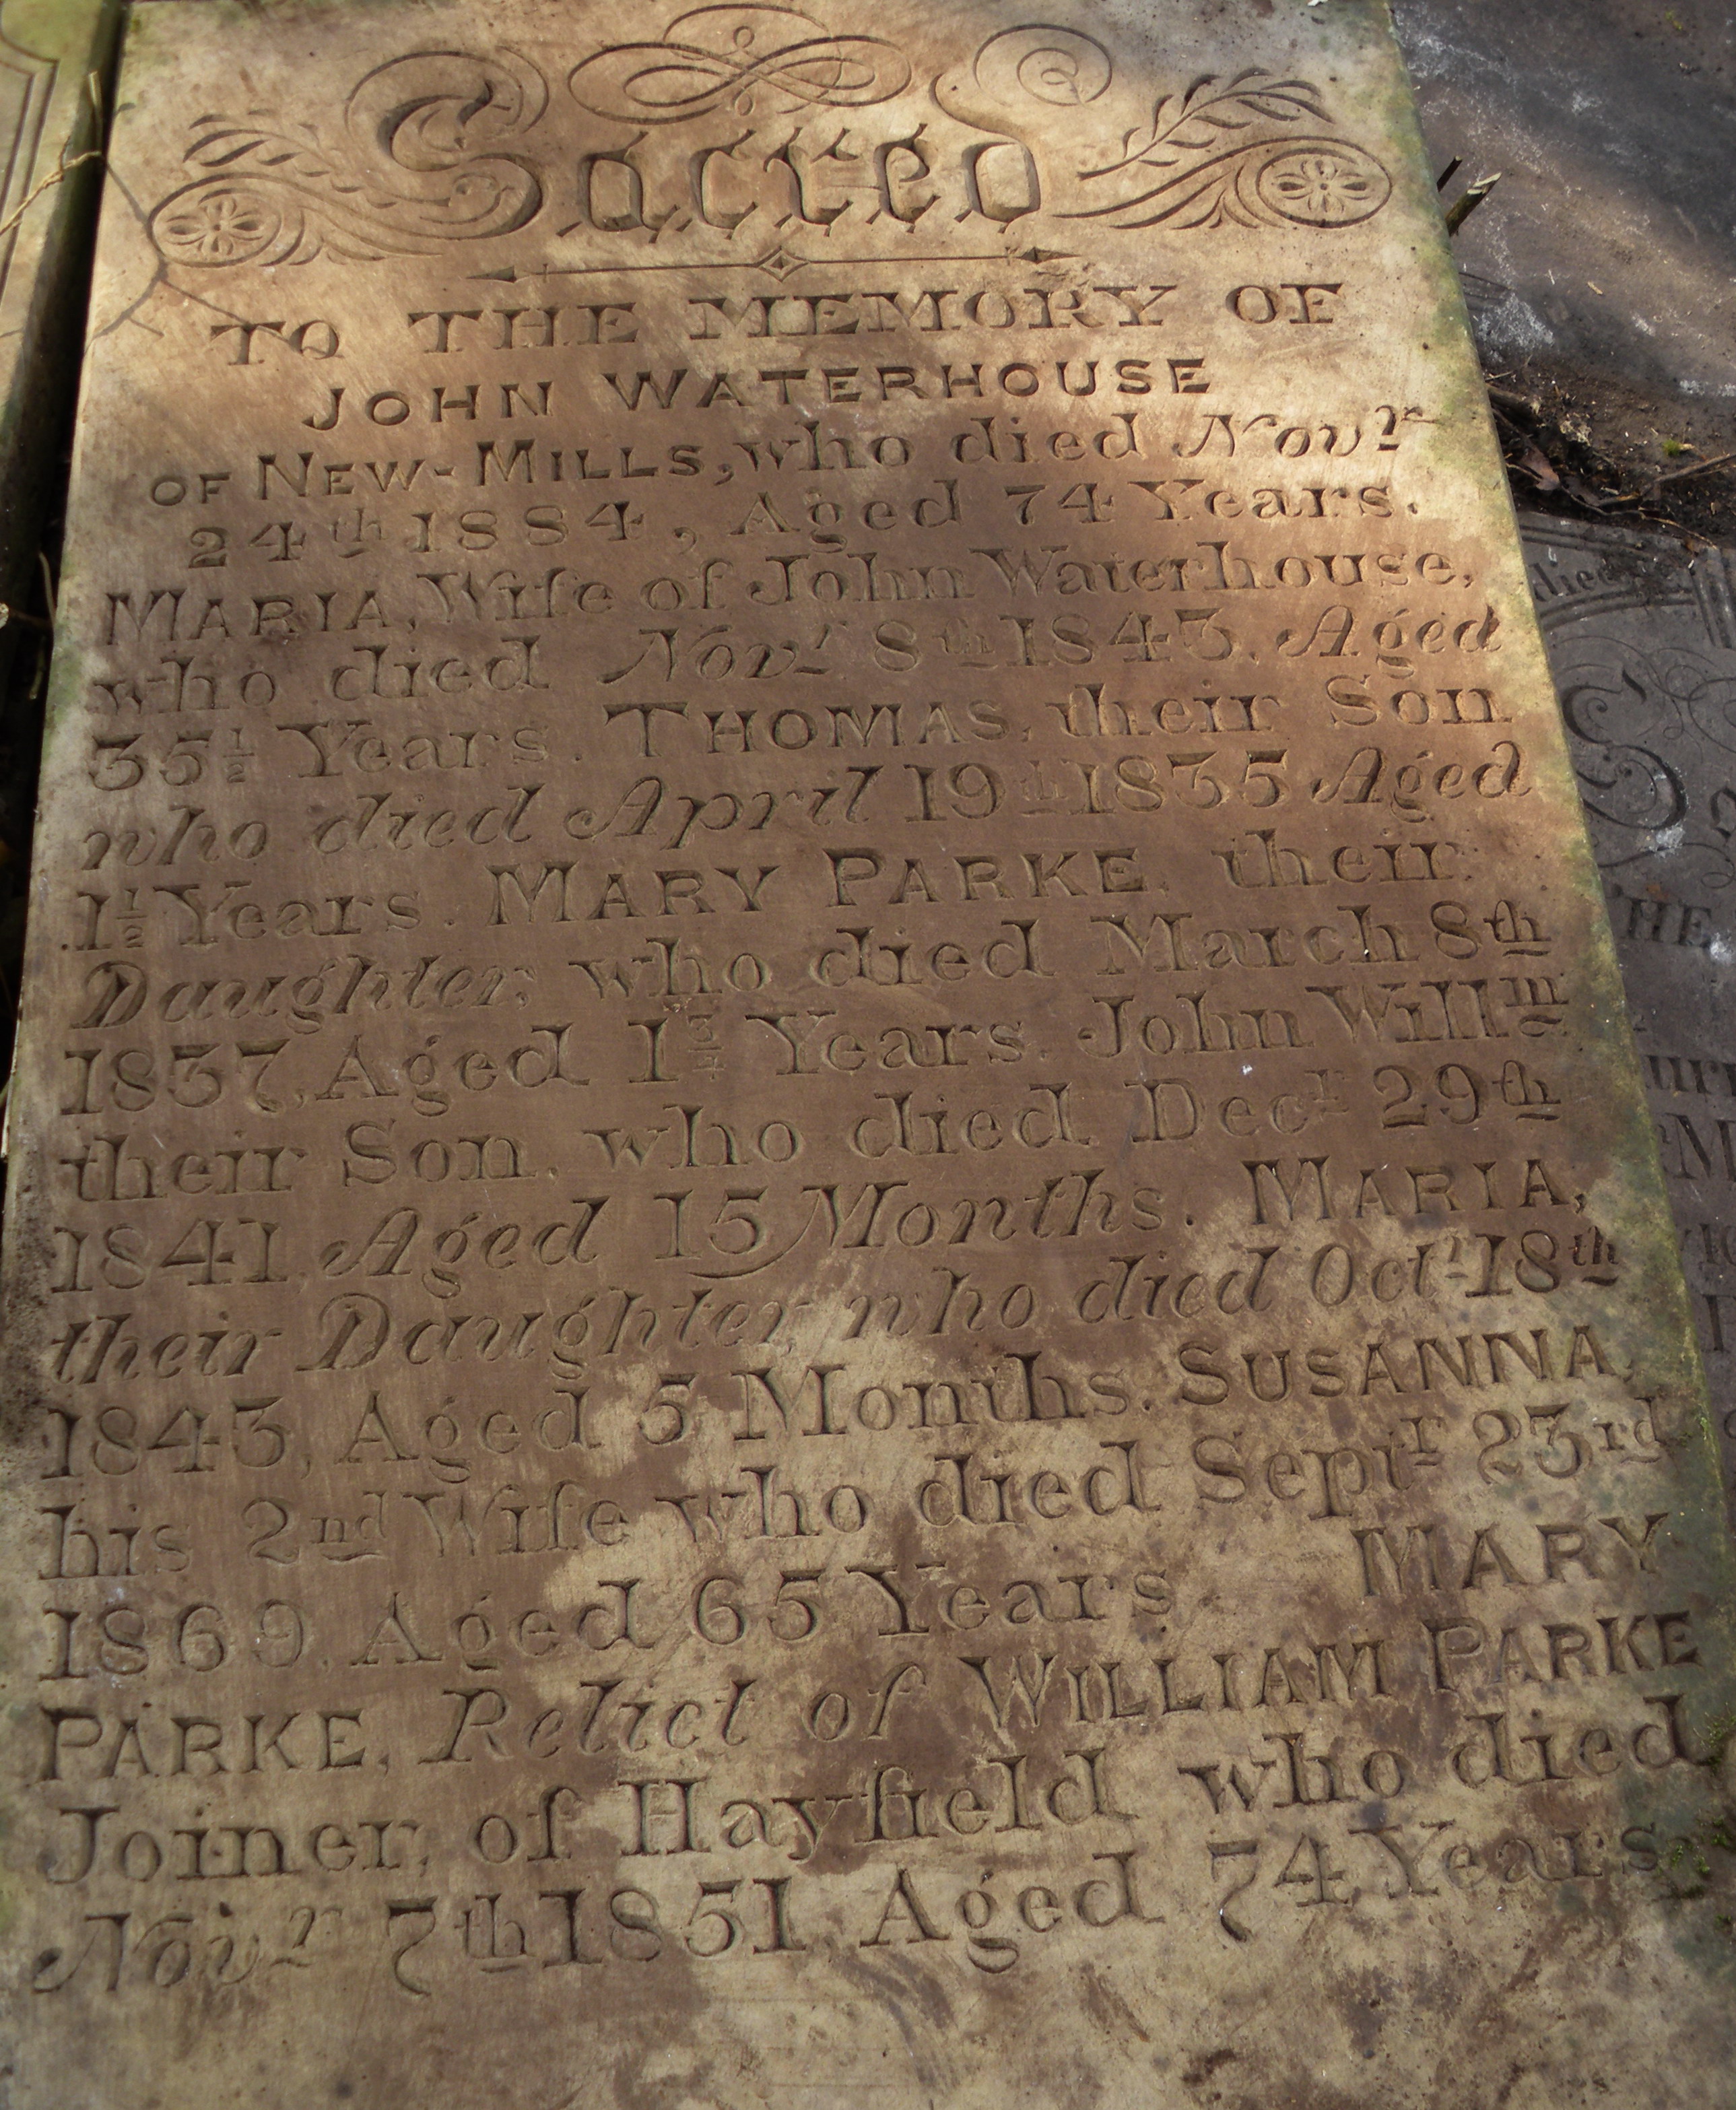 Sacred
TO THE MEMORY OF
JOHN WATERHOUSE
OF NEW-MILLS, who died Novr
24th 1884, Aged 74 Years.
MARIA, Wife of John Waterhouse,
who died Novr 8th 1843, Aged
35½ Years. THOMAS, their Son
who died April 19th 1835 Aged
1½ Years. MARY PARKE, their
Daughter, who died March 8th
1837, Aged 1¾ Years. John Willm
their Son, who died Decr 29th
1841, Aged 15 Months. MARIA,
their Daughter, who died Octr 18th
1843, Aged 5 Months. SUSANNA,
his 2nd Wife who died Septr 23rd
1869, Aged 65 Years MARY
PARKE, Relict of WILLIAM PARKE
Joiner, of Hayfield who died
Novr 7th 1851, Aged 74 Years